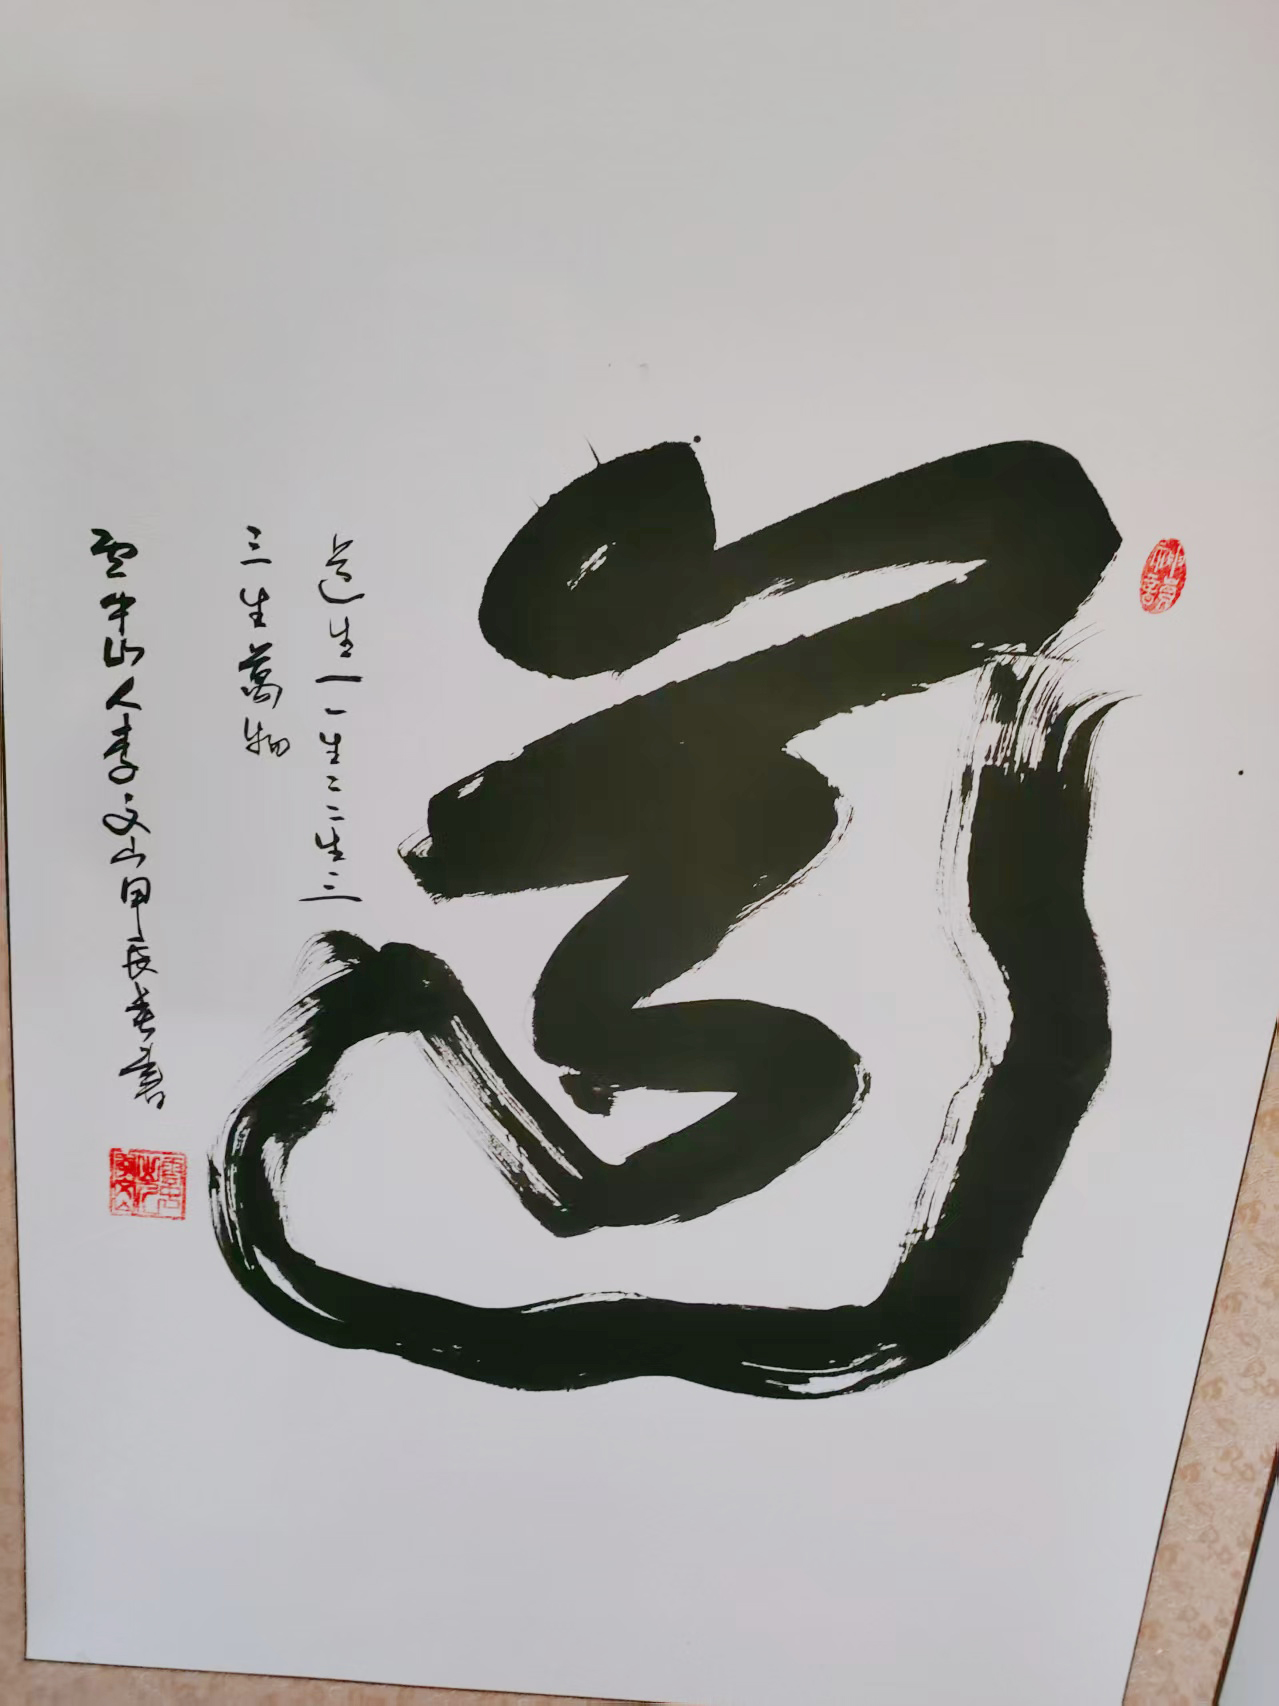 道
道生一一生二二生三
三生萬物
雲牛山人李文山甲辰春書